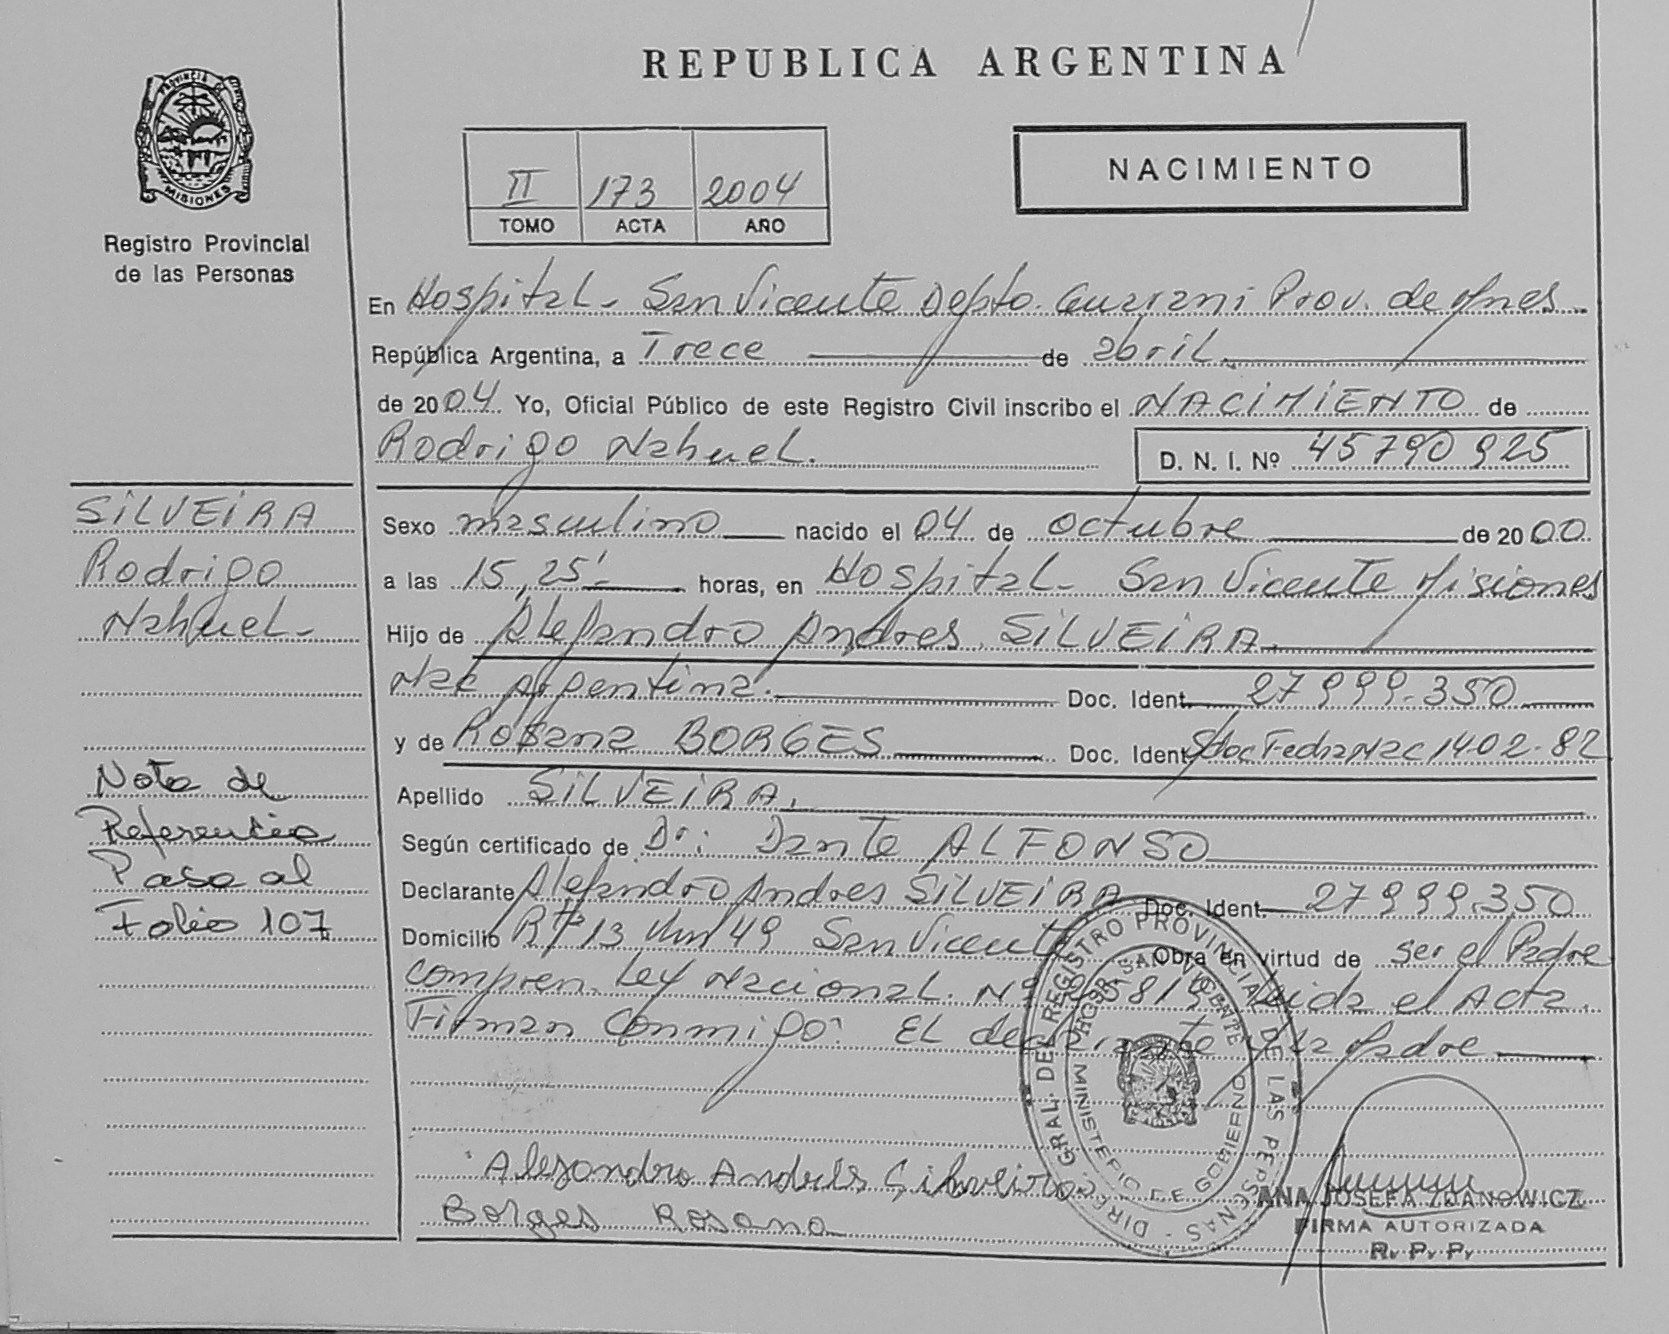 REPUBLICA ARGENTINA
PROVINCIA DE MISIONES
Registro Provincial
de las Personas
II 173 2004
TOMO ACTA AÑO
NACIMIENTO
En Hospital - San Vicente Depto. Guarani Prov. de Mnes
República Argentina, a Trece de abril
de 2004 Yo, Oficial Público de este Registro Civil inscribo el NACIMIENTO de
Rodrigo Nahuel. D. N. I. Nº 45790925
SILVEIRA
Rodrigo
Nahuel -
Sexo masculino nacido el 04 de octubre de 2000
a las 15,25' horas, en Hospital - San Vicente Misiones
Hijo de Alejandro Andres SILVEIRA
Nac Argentina. Doc. Ident. 27999.350
y de Rosana BORGES Doc. Ident. S/doc Fecha Nac 14-02-82
Apellido SILVEIRA.
Según certificado de Dr: Dante ALFONSO
Declarante Alejandro Andres SILVEIRA Doc. Ident. 27999.350
Domicilio Rta 13 Km 49 San Vicente Obra en virtud de ser el Padre
compren. Ley Nacional. Nº Leida el Acta.
Firman Conmigo: EL declarante y la Madre
Nota de
Referencia
Pasa al
Folio 107
Alejandro Andrés Silveira
Borges Rosana
DIREC. GRAL. DEL REGISTRO PROVINCIAL DE LAS PERSONAS -
HOSP. SAN VICENTE
MINISTERIO DE GOBIERNO
ANA JOSEFA ZDANOWICZ
FIRMA AUTORIZADA
R. P. P.